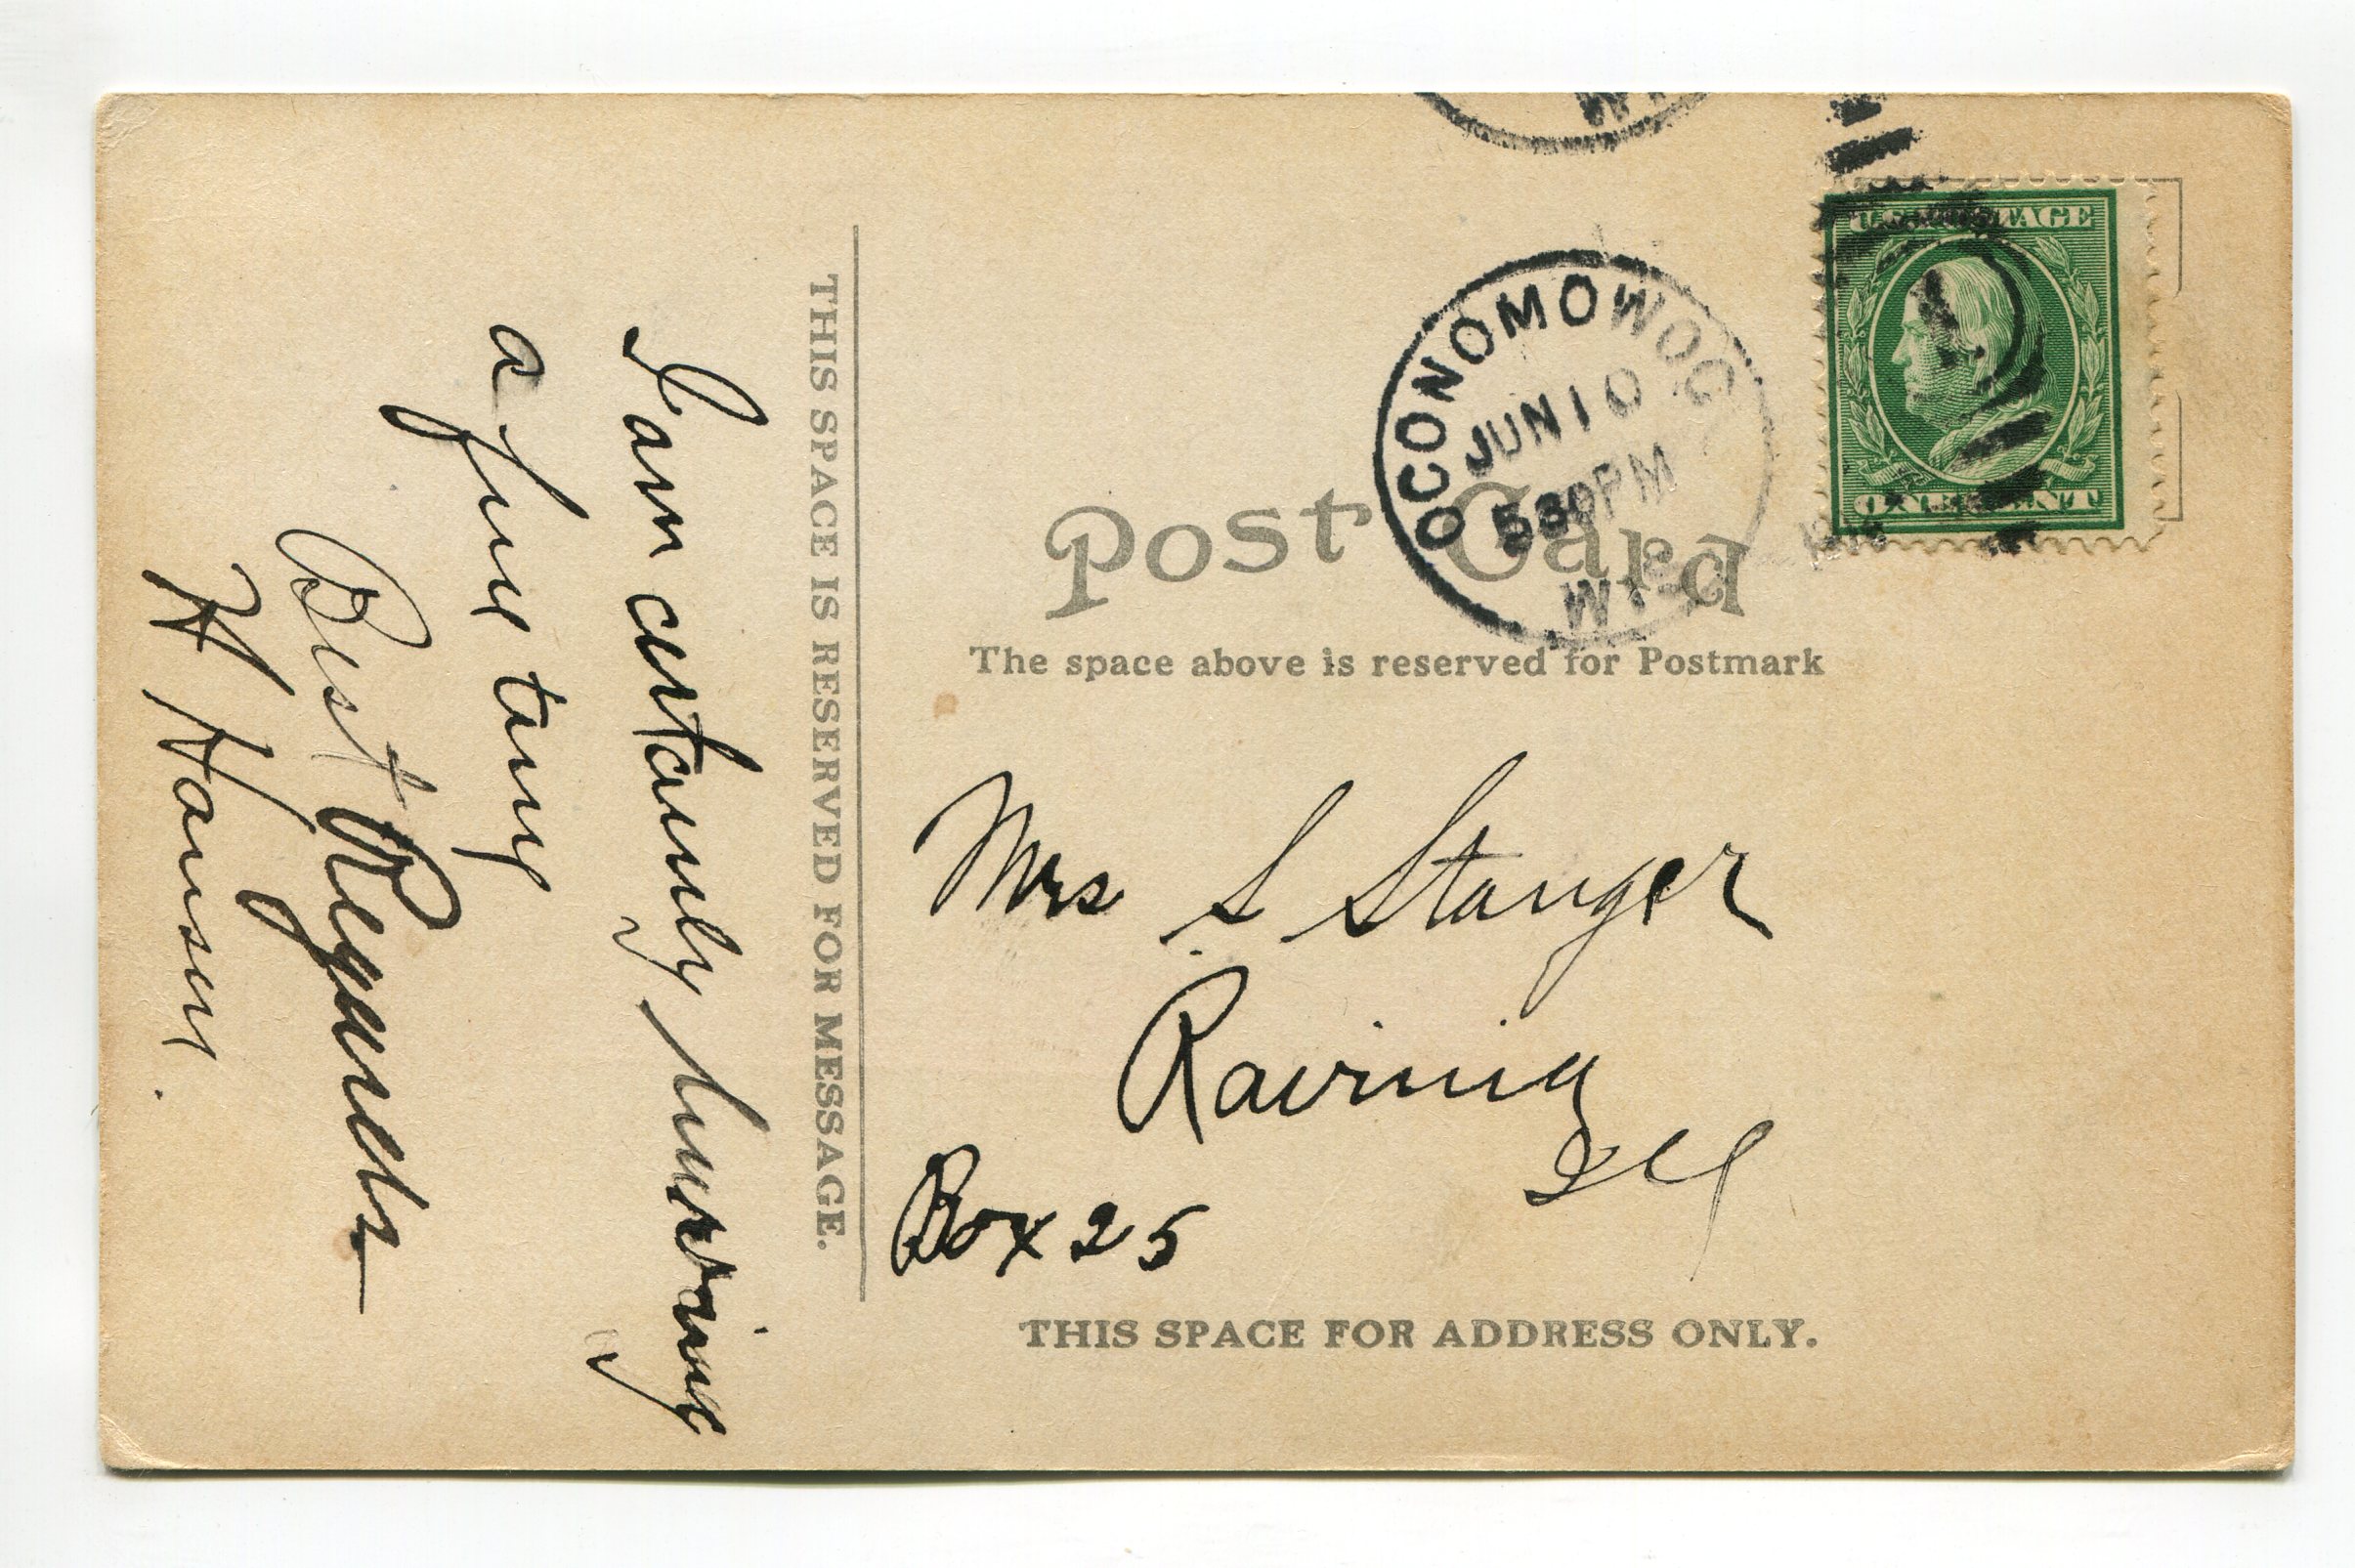 WI
U.S. POSTAGE
ONE CENT
OCONOMOWOC
JUN 10
530PM
WIS
Post Card
The space above is reserved for Postmark
Mrs S Stanger
Ravinia
Ill
Box 25
THIS SPACE FOR ADDRESS ONLY.
THIS SPACE IS RESERVED FOR MESSAGE.
I am certainly having
a fine time
Best Regards
H Hansen.